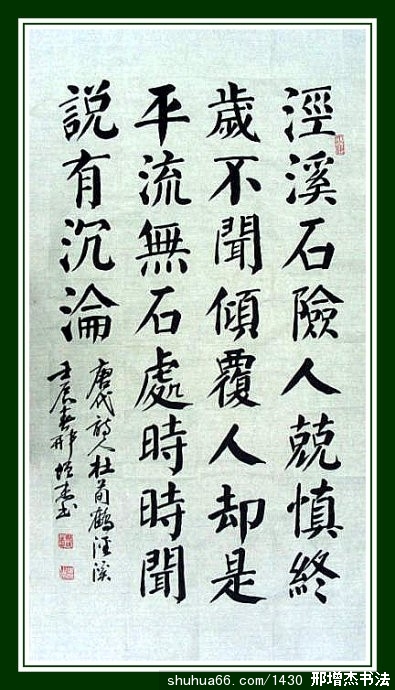 涇溪石險人兢慎終
歲不聞傾覆人却是
平流無石處時時聞
説有沉淪
唐代詩人杜荀鶴涇溪
壬辰春邢增杰书
shuhua66.com/1430 邢增杰书法